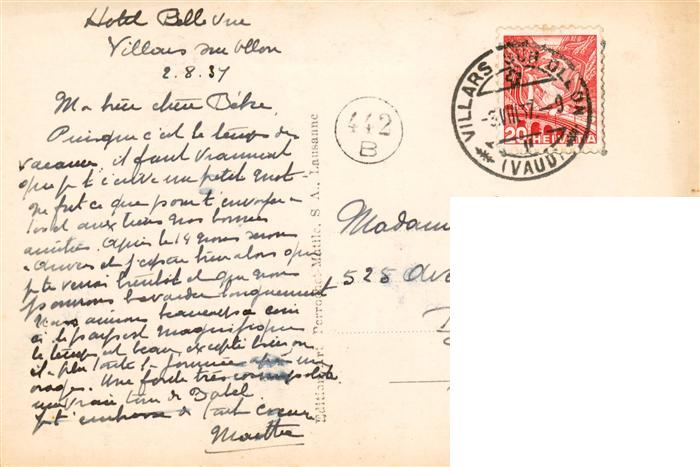 Hotel Bellevue
Villars sur Ollon
2.8.37
Ma bien chère Bébé,
Puisque c'est le temps des
vacances, il faut vraiment
que je t'écrive un petit mot
ce que pour t'envoyer
et aux tiens nos bonnes
amitiés. Après le 14 nous serons
Anvers et j'espère bien alors que
je te verrai bientôt et que nous
pourrons bavarder longuement
Nous aimons beaucoup ce coin
ci le pays est magnifique
le temps est beau, excepté hier, où
il a plu toute la journée après un
orage. Une foule très cosmopolite
une vraie tour de Babel.
Je t'embrasse de tout coeur
Marthe
442
B
Editions Art. Perrochet-Matile, S. A., Lausanne
VILLARS SUR OLLON
(VAUD)
20 HELVETIA
Madam
528 Ave